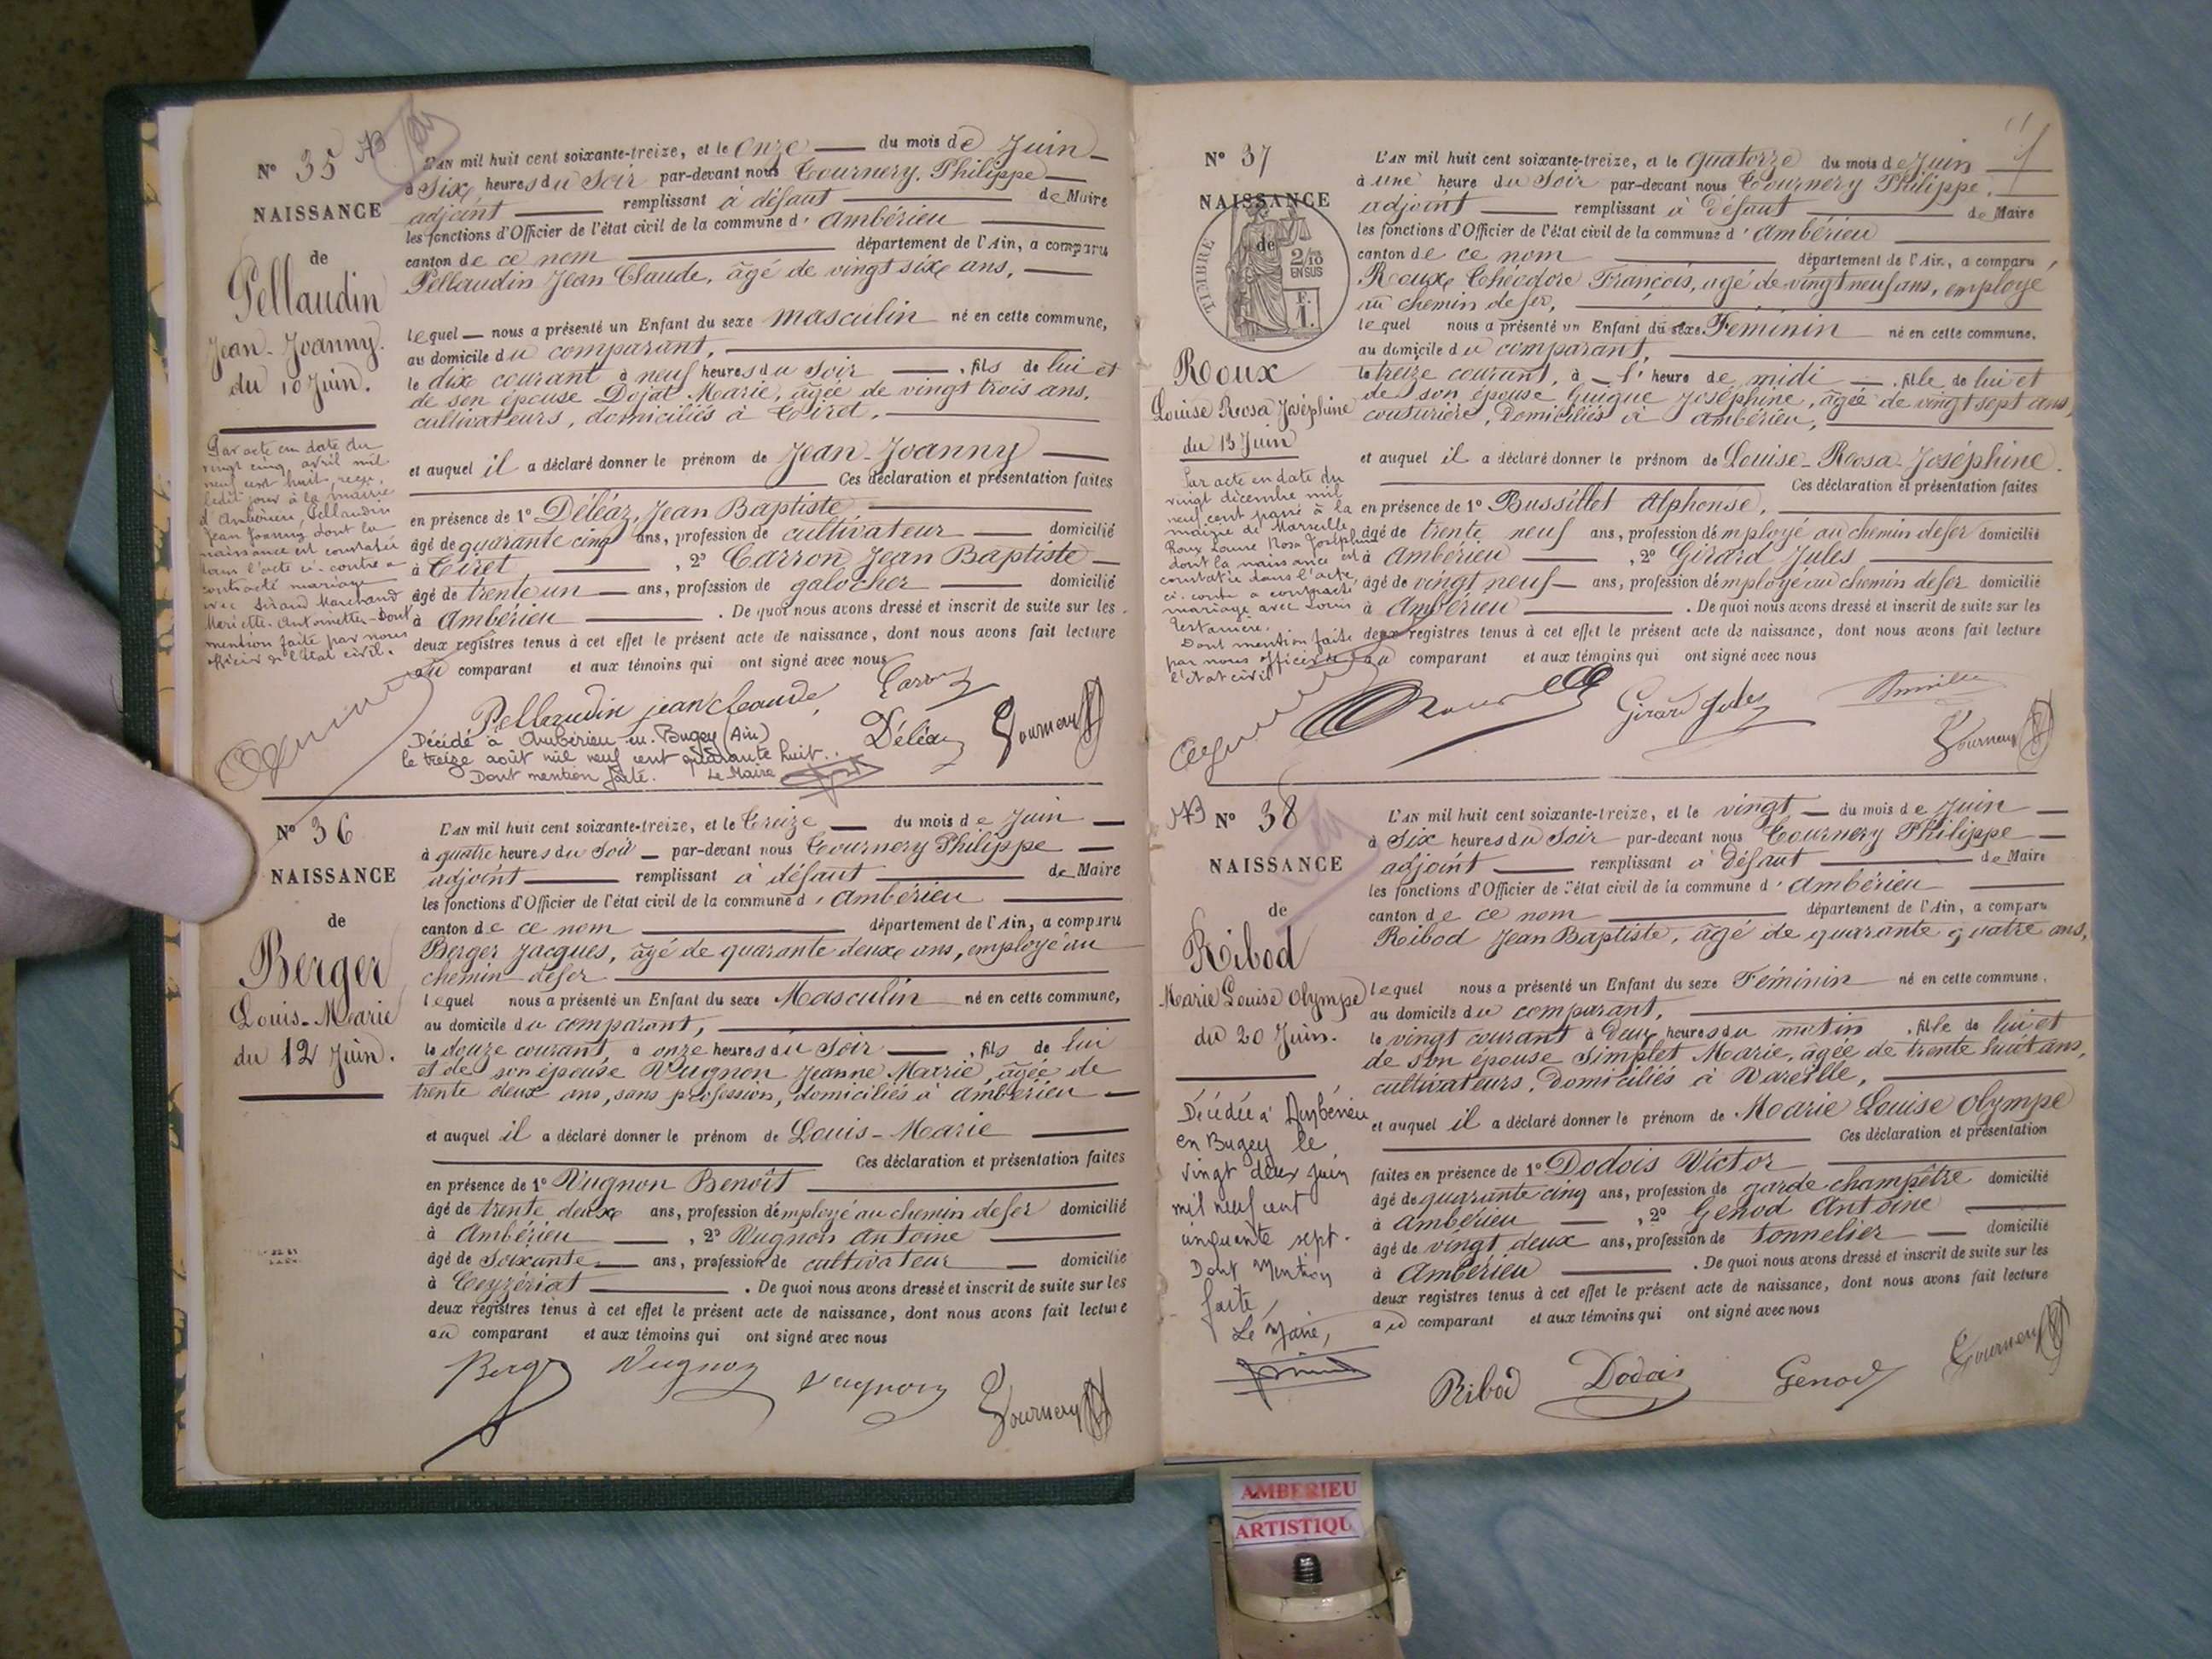 N° 35
NAISSANCE
de
Pellaudin
Jean-Joanny.
du 10 Juin.
Par acte en date du
vingt cinq avril mil
neuf cent huit, reçu,
ledit jour à la mairie
d'Ambérieu, Pellaudin
Jean Joanny dont la
naissance est constatée
dans l'acte ci-contre a
contracté mariage
avec Sirand Marchand
Mariette-Antoinette-Dont
mention faite par nous
officier de l'état civil.
L'AN mil huit cent soixante-treize, et le Onze du mois de Juin
à Six heures du Soir par-devant nous Tournery, Philippe
adjoint remplissant à défaut de Maire
les fonctions d'Officier de l'état civil de la commune d'Ambérieu
canton de ce nom département de l'Ain, a comparu
Pellaudin Jean Claude, âgé de vingt six ans,
lequel nous a présenté un Enfant du sexe masculin né en cette commune,
au domicile du comparant,
le dix courant à neuf heures du Soir, fils de lui et
de son épouse Dojat Marie, âgée de vingt trois ans,
cultivateurs, domiciliés à Tiret,
et auquel il a déclaré donner le prénom de Jean-Joanny
Ces déclaration et présentation faites
en présence de 1° Déléaz, Jean Baptiste
âgé de quarante cinq ans, profession de cultivateur domicilié
à Tiret, 2° Carron Jean Baptiste
âgé de trente un ans, profession de galocher domicilié
à Ambérieu. De quoi nous avons dressé et inscrit de suite sur les
deux registres tenus à cet effet le présent acte de naissance, dont nous avons fait lecture
au comparant et aux témoins qui ont signé avec nous
Pellaudin jean claude, Caron
Déléaz Tournery
Décédé à Ambérieu-en-Bugey (Ain)
le treize août mil neuf cent quarante huit.
Dont mention faite. Le Maire
N° 36
NAISSANCE
de
Berger
Louis-Marie
du 12 Juin.
L'AN mil huit cent soixante-treize, et le Treize du mois de Juin
à quatre heures du Soir par-devant nous Tournery Philippe
adjoint remplissant à défaut de Maire
les fonctions d'Officier de l'état civil de la commune d'Ambérieu
canton de ce nom département de l'Ain, a comparu
Berger Jacques, âgé de quarante deux ans, employé au
chemin de fer
lequel nous a présenté un Enfant du sexe Masculin né en cette commune,
au domicile du comparant,
le douze courant, à onze heures du Soir, fils de lui
et de son épouse Vugnon Jeanne Marie, âgée de
trente deux ans, sans profession, domiciliés à Ambérieu
et auquel il a déclaré donner le prénom de Louis-Marie
Ces déclaration et présentation faites
en présence de 1° Vugnon Benoît
âgé de trente deux ans, profession d'employé au chemin de fer domicilié
à Ambérieu, 2° Vugnon Antoine
âgé de Soixante ans, profession de cultivateur domicilié
à Ceyzériat. De quoi nous avons dressé et inscrit de suite sur les
deux registres tenus à cet effet le présent acte de naissance, dont nous avons fait lecture
au comparant et aux témoins qui ont signé avec nous
Berger Vugnon Vugnon Tournery
N° 37
NAISSANCE
de
TIMBRE
2/10
EN SUS
F.
1.
Roux
Louise Rosa Joséphine
du 13 Juin
Par acte en date du
vingt décembre mil
neuf cent passé à la
mairie de Marseille
Roux Louise Rosa Joséphine
dont la naissance est
constatée dans l'acte
ci-contre a contracté
mariage avec Louis
Testanière.
Dont mention faite
par nous officier de
l'état civil
L'AN mil huit cent soixante-treize, et le quatorze du mois de Juin
à une heure du Soir par-devant nous Tournery Philippe.
adjoint remplissant à défaut de Maire
les fonctions d'Officier de l'état civil de la commune d'Ambérieu
canton de ce nom département de l'Ain, a comparu
Roux Théodore François, agé de vingt neuf ans, employé
au chemin de fer,
lequel nous a présenté un Enfant du sexe Féminin né en cette commune,
au domicile du comparant,
le treize courant, à l'heure de midi, fille de lui et
de son épouse Guigue Joséphine, âgée de vingt sept ans,
couturière, domiciliés à Ambérieu,
et auquel il a déclaré donner le prénom de Louise-Rosa-Joséphine.
Ces déclaration et présentation faites
en présence de 1° Bussillet Alphonse,
âgé de trente neuf ans, profession d'employé au chemin de fer domicilié
à Ambérieu, 2° Girard Jules
âgé de vingt neuf ans, profession d'employé au chemin de fer domicilié
à Ambérieu. De quoi nous avons dressé et inscrit de suite sur les
deux registres tenus à cet effet le présent acte de naissance, dont nous avons fait lecture
au comparant et aux témoins qui ont signé avec nous
Roux Girard Jules
Tournery
N° 38
NAISSANCE
de
Ribod
Marie Louise Olympe
du 20 Juin.
Décédée à Ambérieu
en Bugey le
vingt deux juin
mil neuf cent
cinquante sept.
Dont Mention
faite,
Le Maire,
L'AN mil huit cent soixante-treize, et le vingt du mois de Juin
à Six heures du Soir par-devant nous Tournery Philippe
adjoint remplissant à défaut de Maire
les fonctions d'Officier de l'état civil de la commune d'Ambérieu
canton de ce nom département de l'Ain, a comparu
Ribod Jean Baptiste, âgé de quarante quatre ans,
lequel nous a présenté un Enfant du sexe Féminin né en cette commune,
au domicile du comparant,
le vingt courant à Deux heures du matin, fille de lui et
de son épouse Simplet Marie, âgée de trente huit ans,
cultivateurs, domiciliés à Vareille,
et auquel il a déclaré donner le prénom de Marie Louise Olympe
Ces déclaration et présentation
faites en présence de 1° Dodois Victor
âgé de quarante cinq ans, profession de garde champêtre domicilié
à Ambérieu, 2° Genod Antoine
âgé de vingt deux ans, profession de tonnelier domicilié
à Ambérieu. De quoi nous avons dressé et inscrit de suite sur les
deux registres tenus à cet effet le présent acte de naissance, dont nous avons fait lecture
au comparant et aux témoins qui ont signé avec nous
Ribod Dodois Genod Tournery
AMBERIEU
ARTISTIQU